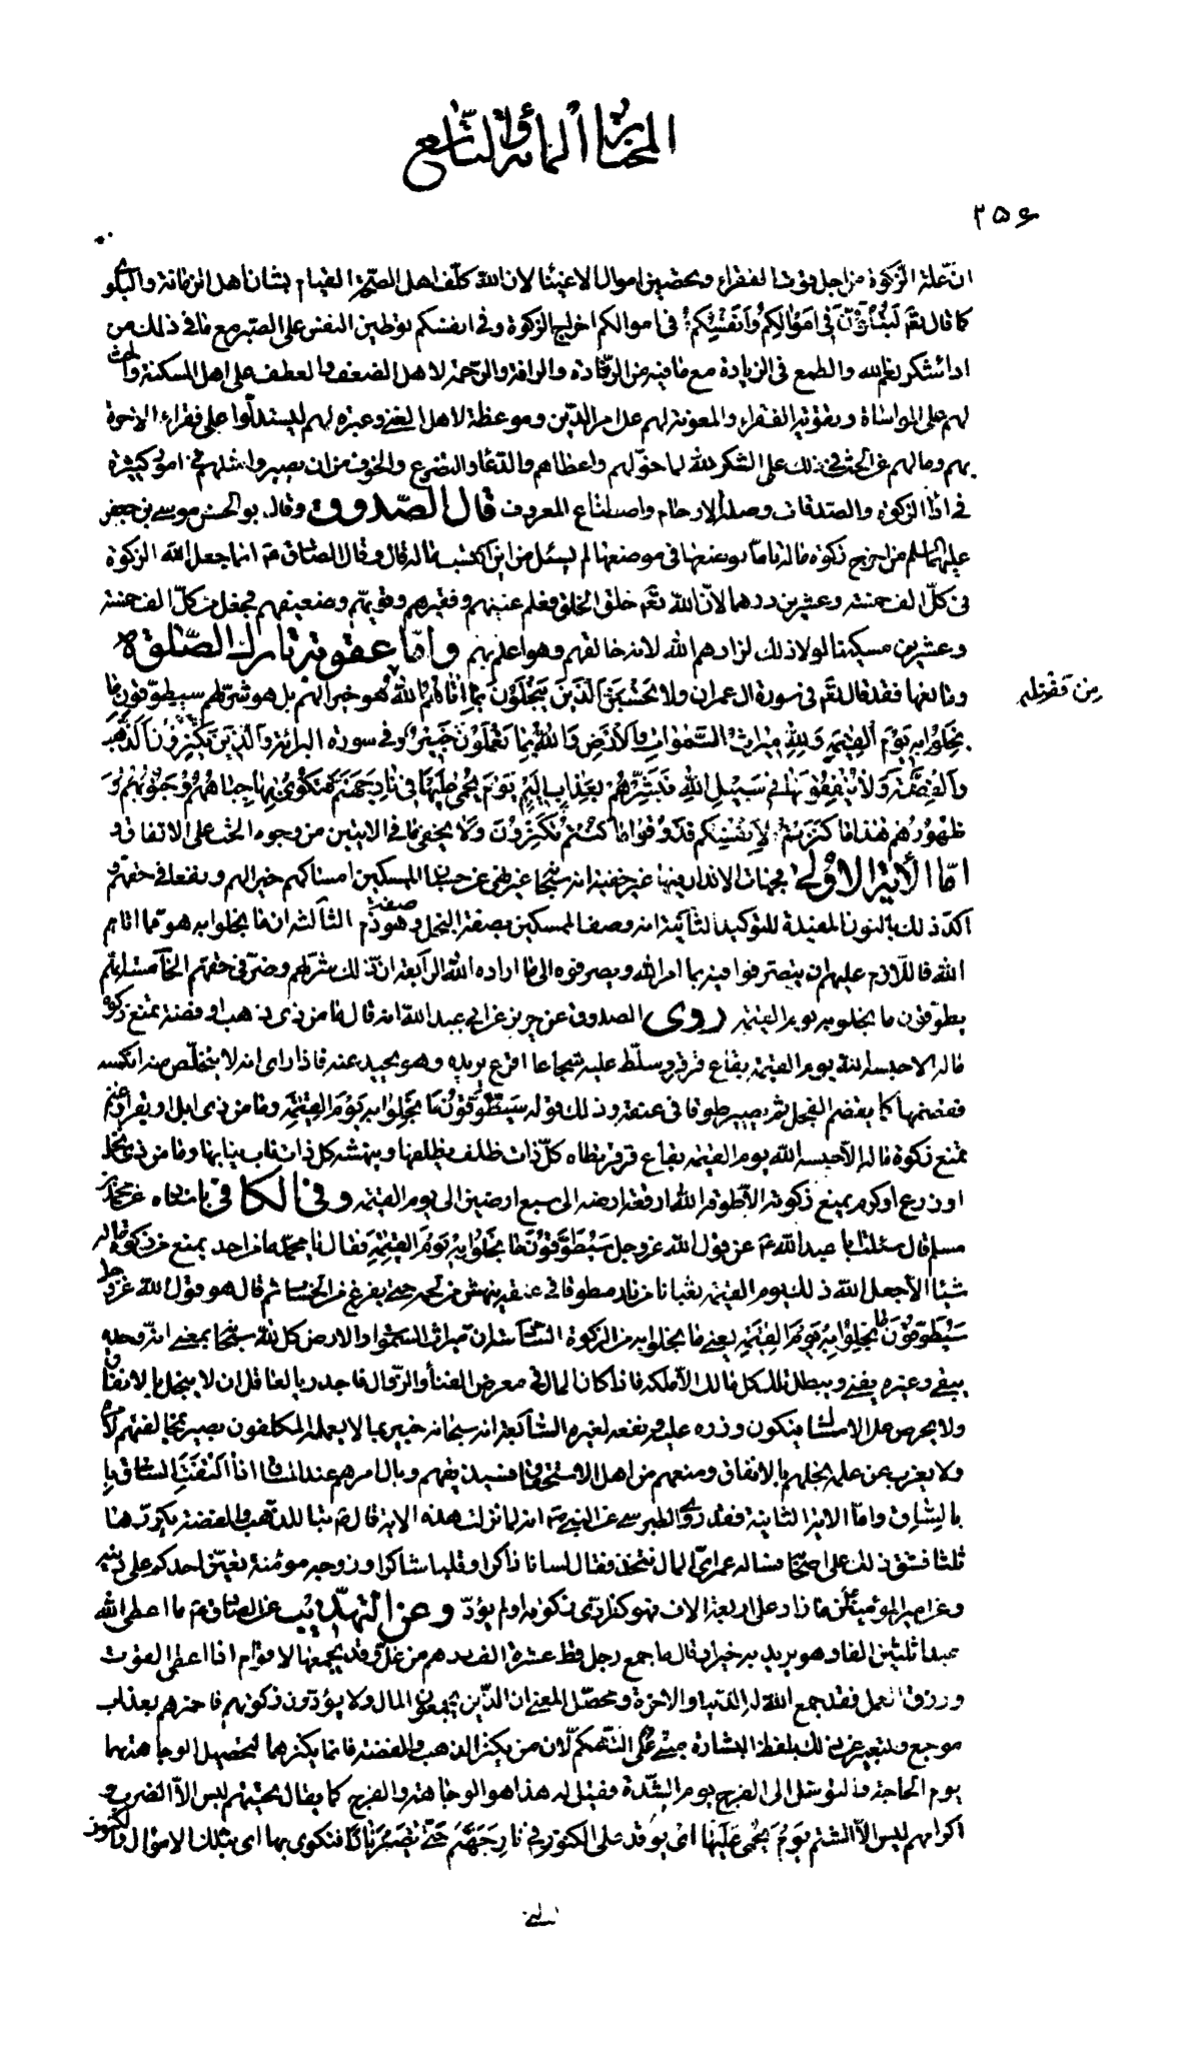 المختار المائة والتاسع
۲۵۶
انّ علّة الزكوة من اجل قوت الفقراء وتحصين اموال الاغنياء لان الله كلّف اهل الصّحّة القيام بشان اهل الزمانة والبلوى
كما قال تعم لَتُبْلَوُنَّ فى اَمْوٰالِكُمْ وَاَنْفُسِكُمْ فى اموالكم اخراج الزكوة وفى انفسكم توطين النفس على الصّبر مع ما فى ذلك من
اداء شكر نعم الله والطمع فى الزيادة مع ما فيه من الزّيادة والرافة والرّحمة لاهل الضعف والعطف على اهل المسكنة والحث
لهم على المواساة وتقوية الفقراء والمعونة لهم على امر الدّين وموعظة لاهل الغنى وعبرة لهم ليستدلّوا على فقراء الاخرة
بهم وما لهم من الحث فى ذلك على الشكر لله لما خوّلهم واعطاهم والدّعاء والتضرع والخوف من ان يصيروا مثلهم فى امور كثيرة
فى اداء الزكوة والصّدقات وصلة الارحام واصطناع المعروف قال الصّدوق وقال ابو الحسن موسى بن جعفر
عليهما السلم من اخرج زكوة ماله تامّا بوضعها فى موضعها لم يسئل من اين اكتسب ماله قال وقال الصّادق ع انما جعل الله الزكوة
فى كلّ الف خمسة وعشرين درهما لانّ الله تعم خلق الخلق فعلم غنيهم وفقيرهم وقويّهم وضعيفهم فجعل من كلّ الف خمسة
وعشرين مسكينا لولا ذلك لزادهم الله لانه خالقهم وهو اعلم بهم وامّا عقوبة تارك الصّلوة
من فضله
ومانعها فقد قال تعم فى سورة ال عمران ولا يَحْسَبَنَّ الَّذينَ يَبْخَلُونَ بِمٰا اٰتٰاهُمُ اللهُ هُو خير الهم بل هو شرّ لهم سيطوّقون ما
بَخِلُوا بِهِ يَوْمَ الْقِيٰمَةِ وَلِلّٰهِ مِيرٰاثُ السَّمٰوٰاتِ وَالْاَرْضِ وَاللّٰهُ بِمٰا تَعْمَلُونَ خَبيرٌ وفى سورة البرائة وَالَّذينَ يَكْنِزُونَ الذَّهَبَ
وَالْفِضَّةَ وَلاٰ يُنْفِقُونَهٰا فى سَبيلِ اللّٰهِ فَبَشِّرْهُمْ بِعَذٰابٍ اَليمٍ يَوْمَ يُحْمىٰ عَلَيْهٰا فى نٰارِ جَهَنَّمَ فَتُكْوىٰ بِهٰا جِبٰاهُهُمْ وَجُنُوبُهُمْ وَ
ظُهُورُهُمْ هٰذٰا مٰا كَنَزْتُمْ لِاَنْفُسِكُمْ فَذُوقُوا مٰا كُنْتُمْ تَكْنِزُونَ ولا يخفى ما فى الايتين من وجوه الحث على الانفاق و
امّا الٔاية الاوْلى فجهات الانذار فيها غير خفية انه سبحانه عن حسبان الممسكين امساكهم خيرا لهم ونفعا فى حقهم و
اكدّ ذلك بالنون المفيدة للتوكيد الثّانية انه وصف الممسكين بصفة البخل وهو صفة ذم الثالثة ان ما بخلوا به هو مّما اتاهم
الله فاللّازم عليهم ان يتصرفوا فيه بما امر الله ويصرفوه الى ما اراده الله الرّابعة انّ ذلك شرّ لهم وضرّ فى حقهم الخامسة انهم
يطوّقون ما بخلوا به يوم القيمة روى الصدوق عن حريز عن ابى عبد الله انه قال ما من ذى ذهب او فضة يمنع زكوة
ماله الا حبسه الله يوم القيمة بقاع قرقر وسلّط عليه شجاعا اقرع يريده وهو يحيد عنه فاذا راى انه لا يتخلّص منه امكنه
فقضمها كما يقضم الفجل ثم يصير طوقا فى عنقه وذلك قوله سَيُطَوَّقُونَ مٰا بَخِلُوا بِهِ يَوْمَ الْقِيٰمَةِ وما من ذى ابل او بقر او غنم
يمنع زكوة ماله الاّ حبسه الله يوم القيمة بقاع قرقر تطاه كلّ ذات ظلف بظلفها وينهشه كل ذات ناب بنابها وما من ذى نخل
او زرع او كرم يمنع زكوته الاّ طوقه الله ارفعة ارضه الى سبع ارضين الى يوم القيمة وفى الكافى باسناه عن محمد بن
مسلم قال سئلت ابا عبد الله ع عن قول الله عزوجل سَيُطَوَّقُونَ مٰا بَخِلُوا بِهِ يَوْمَ الْقِيٰمَةِ فقال يا محمد ما من احد يمنع من زكوة ماله
شيئا الا جعل الله ذلك يوم القيمة ثعبانا من نار مطوقا فى عنقه ينهش من لحمه حتى يفرغ من الحساب ثم قال هو قول الله عزوجل
سَيُطَوَّقُونَ مٰا بَخِلُوا بِهِ يَوْمَ الْقِيٰمَةِ يعنى ما بخلوا به من الزكوة السّادسة ان ميراث السّموات والارض كل لله سبحانه بمعنى انه وحده
يبقى وغيره يفنى ويبطل ملك كل مالك الاّ ملكه فاذا كان المال فى معرض الفناء والزّوال فاجدر بالعاقل ان لا يبخل بالانفاق
ولا يحرص على الامساك فيكون وزره عليه ونفعه لغيره السّابعة انه سبحانه خبير بما لا يعمله المكلفون بصير بمخالفتهم لامره
ولا يعزب عن علمه بخلهم بالانفاق ومنعهم من اهل الاستحقاق فسيذيقهم وبال امرهم عند المساق اذا الْتَفَّتِ السّاق
بالسّاق وامّا الاية الثانية فقد روى الطبرسى عن النبى ص انه لما نزلت هذه الاية قال ص تبّا للذّهب والفضة يكررّها
ثلثا فشق ذلك على اصحابه فساله عمر اىّ المال نتخذ فقال لسانا ذاكرا وقلبا شاكرا وزوجة مؤمنة تعين احدكم على دينه
وعن امير المؤمنين ع ما زاد على اربعة الاف فهو كنز ادّى زكوته او لم يؤدّ وعن التهذيب عن الصادق ع ما اعطى الله
عبدا ثلثين الفا وهو يريد به خيرا وقال ما جمع رجل قط عشرة الف درهم من حل وقد يجمعها الاقوام اذا اعطى القوت
ورزق العمل فقد جمع الله له الدّنيا والاخرة ومحصّل المعنى ان الذّين يجمعون المال ولا يؤدّون زكوتهم فاخبرهم بعذاب
موجع والتعبير عن ذلك بلفظ البشارة مبنى على التّهكم لّان من يكنز الذهب والفضة فانما يكنزهما لتحصيل الوجاهة بهما
يوم الحاجة والتوسل الى الفرج يوم الشّدة فقيل له هذا هو الوجاهة والفرج كما يقال تحيتهم ليس الاّ الضرب و
اكرامهم ليس الاّ الشتم يَوْمَ يُحْمىٰ عَلَيْهٰا اى يوقد على الكنوز فى نارِ جَهَنَّمَ حَتّى تصير نارا فتكوى بها اى بتلك الاموال والكنوز